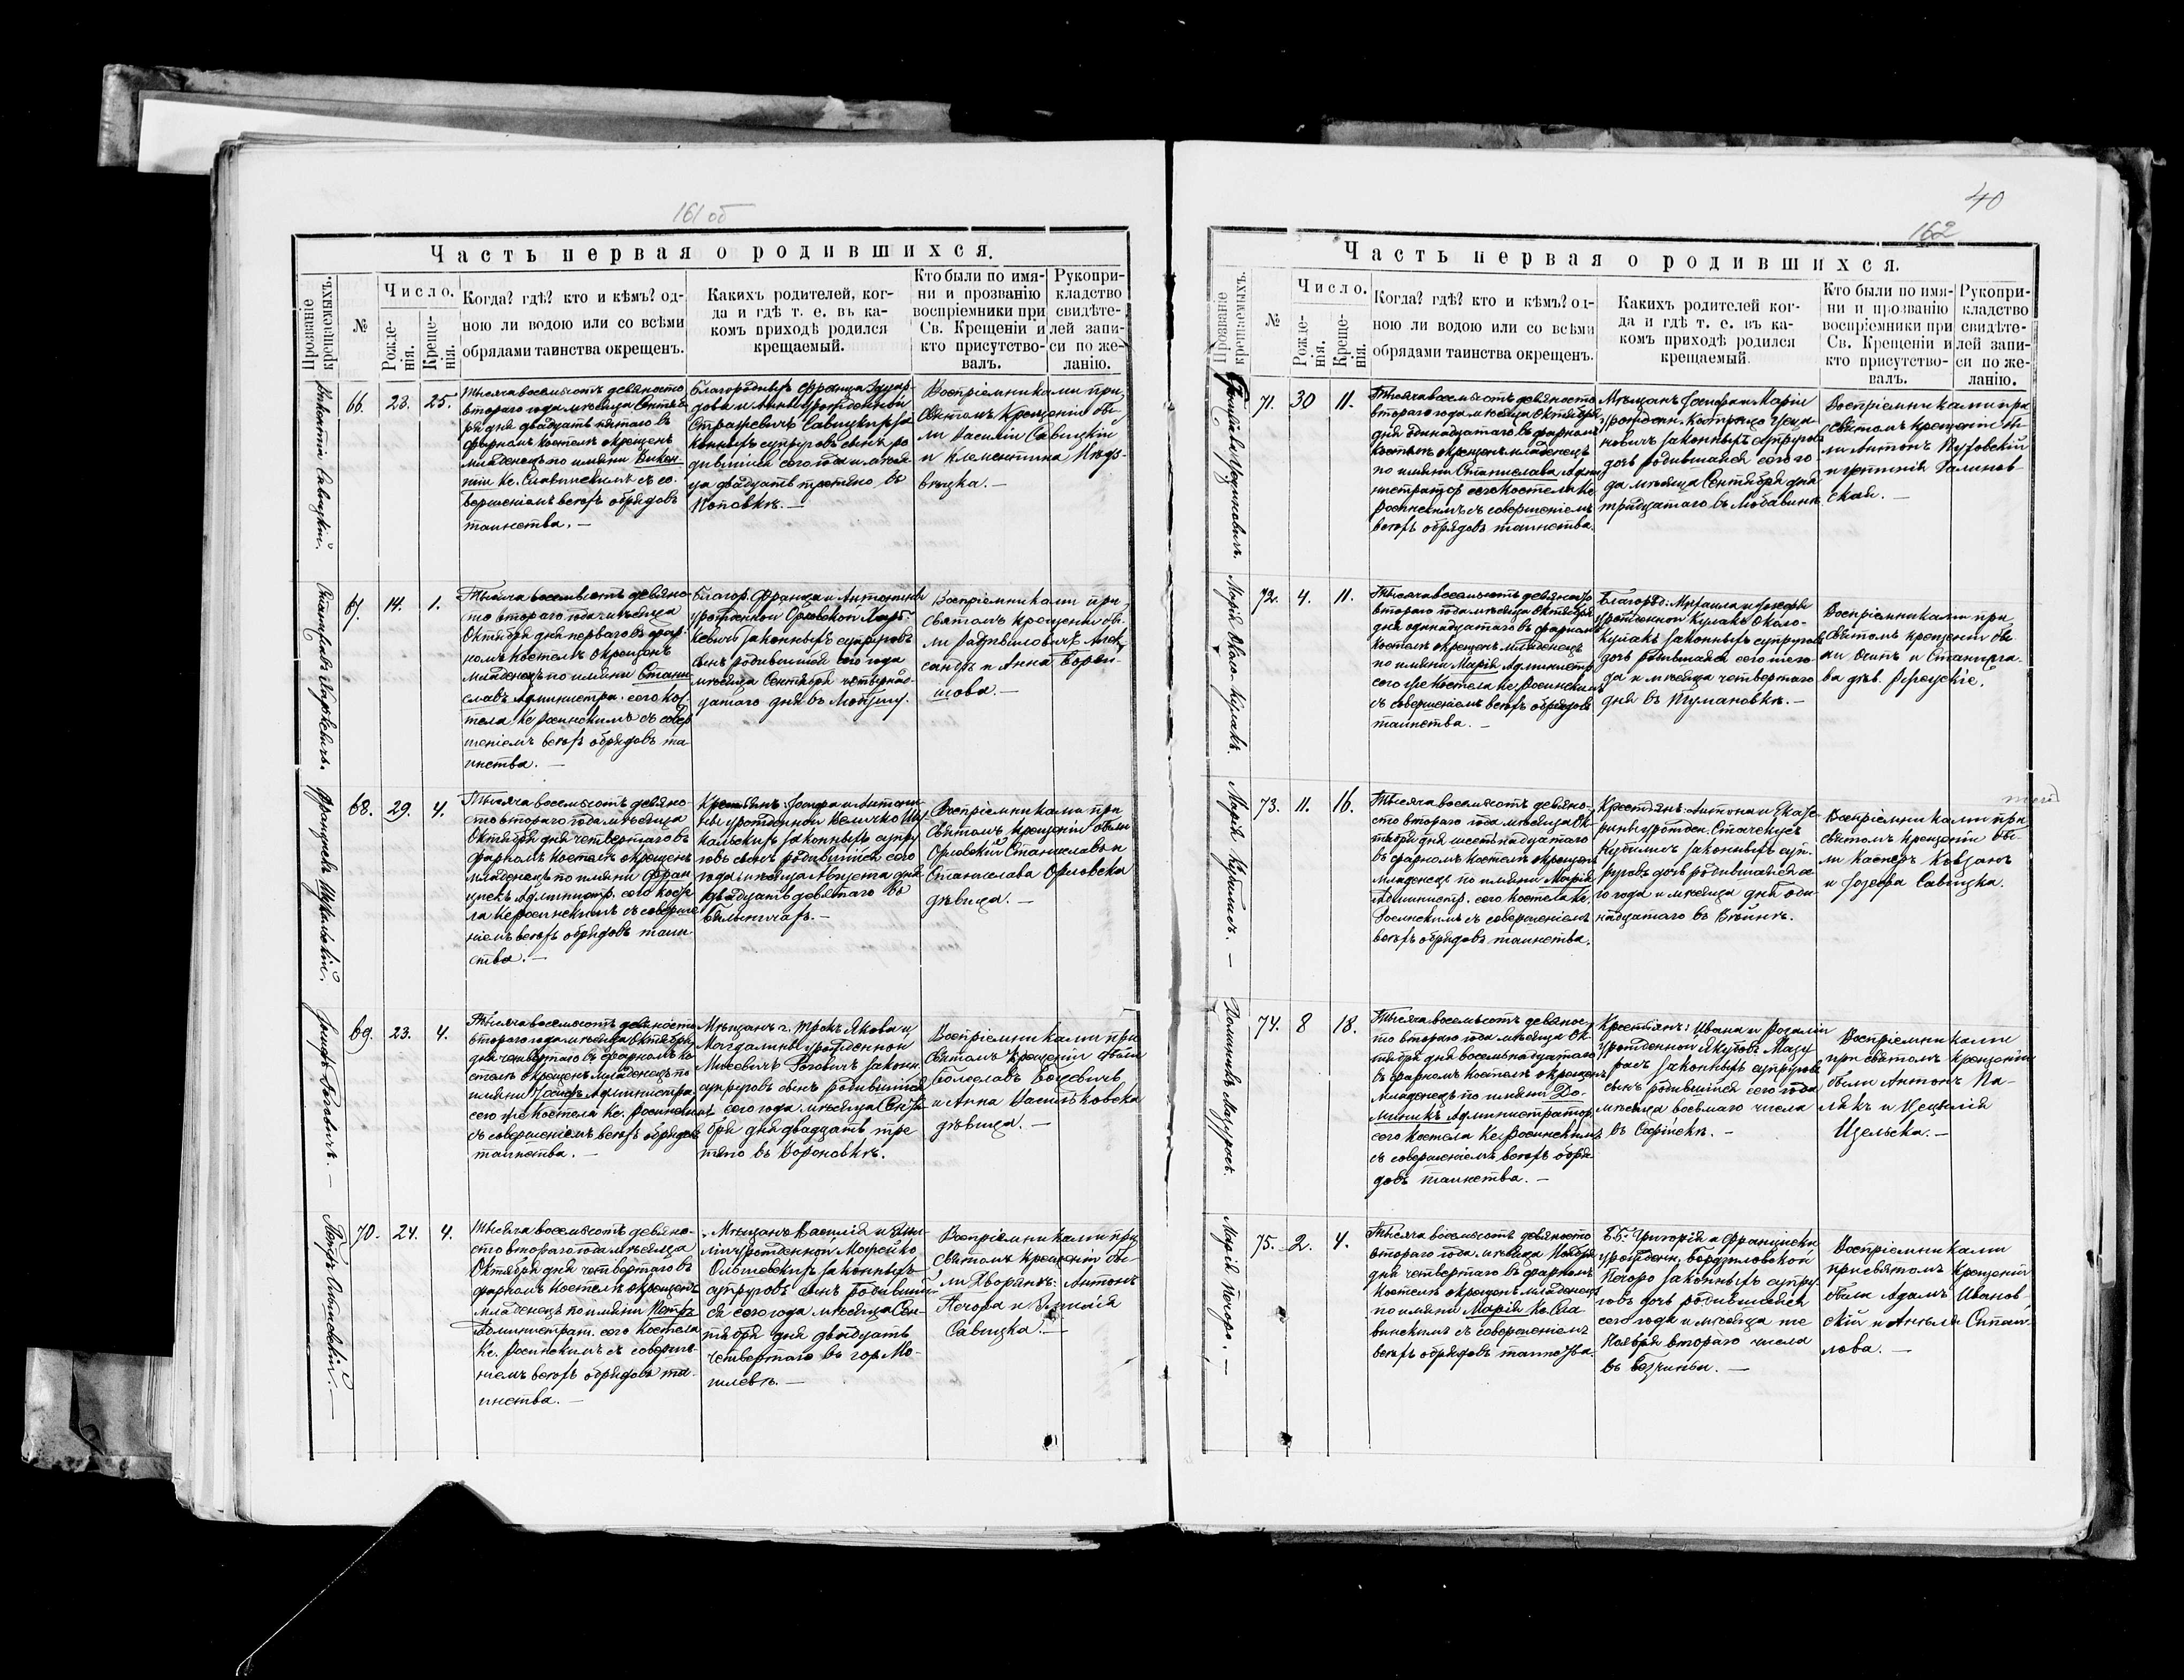 161 об
Часть первая о родившихся.
Прозваніе крещаемыхъ.
№
Число.
Рожде-
нія.
Креще-
нія.
Когда? гдѣ? кто и кѣмъ? од-
ною ли водою или со всѣми
обрядами таинства окрещенъ.
Какихъ родителей, ког-
да и гдѣ т. е. въ ка-
комъ приходѣ родился
крещаемый.
Кто были по имя-
ни и прозванію
воспріемники при
Св. Крещеніи и
кто присутство-
валъ.
Рукопри-
кладство
свидѣте-
лей запи-
си по же-
ланію.
Викентій Савицкій.
66.
23.
25.
Тысяча восемьсотъ девяносто
втораго года мѣсяца Сентяб
ря дня двадцать пятаго въ
фарномъ костелѣ окрещенъ
младенецъ по имяни Викен
тій Кс. Славинскимъ съ со-
вершеніемъ всѣхъ обрядовъ
таинства. —
Благородныхъ Франца Эдуар-
дова и Анны урожденной
Страшевичъ Савицкихъ за
конныхъ супруговъ сынъ ро
дившійся сего года и мѣся
ца двадцать третяго въ
Поповкѣ. —
Воспріемниками при
Святомъ Крещеніи бы-
ли Василій Савицкій
и Клементина
Станиславъ
67.
14.
1.
Тысяча восемьсотъ девяно-
сто втораго года мѣсяца
Октября дня перваго въ фар-
номъ костелѣ окрещенъ
младенецъ по имяни Стани
славъ Администра. сего Кос
тела Кс. Росинскимъ съ совер
шеніемъ всѣхъ обрядовъ та
инства. —
Благор. Франца и Антонины
урожденной Орловской
кевичъ законныхъ супруговъ
сынъ родившійся сего года
мѣсяца Сентября четырнад-
цатаго дня въ
Воспріемниками при
Святомъ Крещеніи бы-
ли Алек
сандръ и Анна
68.
29.
4.
Францискъ
Тысяча восемьсотъ девяно
сто втораго года мѣсяца
Октября дня четвертаго въ
фарномъ костелѣ окрещенъ
младенецъ по имяни Фран
цискъ Администр. сего косте
ла Кс. Росинскимъ съ соверше
ніемъ всѣхъ обрядовъ таин
ства. —
Крестьянъ: Іосифа и Антони
ны урожденной Величко
законныхъ супру
говъ сынъ родившійся сего
года мѣсяца Августа дня
двадцать девятаго въ
Бѣлыничахъ. —
Воспріемниками при
Святомъ Крещеніи были
Орловскій Станиславъ и
Станислава Орловска
дѣвица. —
Іосифъ
69.
23.
4.
Тысяча восемьсотъ девяносто
втораго года мѣсяца Октября
дня четвертаго въ фарномъ ко
стелѣ окрещенъ младенецъ по
имяни Іосифъ Администра.
сего же костела Кс. Росинскимъ
съ совершеніемъ всѣхъ обрядовъ
таинства. —
Мѣщанъ г. Трокъ Якова и
Магдалины урожденной
законн.
супруговъ сынъ родившійся
сего года мѣсяца Сентя
бря дня двадцать тре
тяго въ Вороновкѣ.
Воспріемниками при
Святомъ Крещеніи были
Болеславъ
и Анна Васильковска
дѣвица. —
Петръ
70.
24.
4.
Тысяча восемьсотъ девяно-
сто втораго года мѣсяца
Октября дня четвертаго въ
фарномъ костелѣ окрещенъ
младенецъ по имяни Петръ
Администрат. сего костела
Кс. Росинскимъ съ соверше-
ніемъ всѣхъ обрядовъ та-
инства. —
Мѣщанъ Василія и Эми-
ліи урожденной Мацейко
законныхъ
супруговъ сынъ родивший-
ся сего года мѣсяца Сен-
тября дня двадцать
четвертаго въ гор. Мо-
гилевѣ. —
Воспріемниками при
Святомъ Крещеніи бы-
ли Дворянъ: Антонъ
Печора и
Савицка. —
40
162
Часть первая о родившихся.
Прозваніе крещаемыхъ.
№
Число.
Рожде-
нія.
Креще-
нія.
Когда? гдѣ? кто и кѣмъ? од-
ною ли водою или со всѣми
обрядами таинства окрещенъ.
Какихъ родителей ког-
да и гдѣ т. е. въ ка-
комъ приходѣ родился
крещаемый.
Кто были по имя-
ни и прозванію
воспріемники при
Св. Крещеніи и
кто присутство-
валъ.
Рукопри-
кладство
свидѣте-
лей запи-
си по же-
ланію.
71.
30
11.
Тысяча восемьсотъ девяносто
втораго года мѣсяца Октября
дня одинадцатаго въ фарномъ
костелѣ окрещенъ младенецъ
по имяни Станислава Адми
нистратор. сего костела Кс.
Росинскимъ съ совершеніемъ
всѣхъ обрядовъ таинства.
Мѣщанъ Іосифа и Маріи
урожден.
законныхъ супруговъ
дочь родившаяся сего го
да мѣсяца Сентября дня
тридцатаго въ
Воспріемниками при
Святомъ Крещеніи бы-
ли Антонъ
Калинов
ская. —
Марія Около-Кулакъ.
72.
4.
11.
Тысяча восемьсотъ девяносто
втораго года мѣсяца Октября
дня одинадцатаго въ фарномъ
костелѣ окрещенъ младенецъ
по имяни Марія Администр.
сего же костела Кс. Росинскимъ
съ совершеніемъ всѣхъ обрядовъ
таинства. —
Благород: Михаила и Іозефы
урожденной Кулакъ Около-
Кулакъ законныхъ супруговъ
дочь родившаяся сего же го-
да и мѣсяца четвертаго
дня въ Тумановкѣ. —
Воспріемниками при
Святомъ Крещеніи бы
ли Осипъ и Станисла-
ва дѣв.
Марія Кубилюсъ. —
73.
11.
16.
Тысяча восемьсотъ девяно-
сто втораго года мѣсяца Ок-
тября дня шестнадцатаго
въ фарномъ костелѣ окрещенъ
младенецъ по имяни Марія
Администр. сего костела Кс.
Росинскимъ съ совершеніемъ
всѣхъ обрядовъ таинства.
Крестьянъ: Антона и Екате
рины урожден.
законныхъ суп-
руговъ дочь родившаяся се
го года и мѣсяца дня оди
надцатаго въ
Воспріемниками при
святомъ крещеніи бы-
ли Касперъ
и Іозефа Савицка.
Доминикъ Мазуросъ.
74.
8
18.
Тысяча восемьсотъ девянос-
то втораго года мѣсяца Ок
тября дня восемнадцатаго
въ фарномъ костелѣ окрещенъ
младенецъ по имяни До-
миникъ Администратор
сего костела Кс. Росинскимъ
съ совершеніемъ всѣхъ обря
довъ таинства. —
Крестьянъ: Ивана и Розаліи
урожденной Якубовъ Мазу
росъ законныхъ супруговъ
сынъ родившійся сего года
мѣсяца восьмаго числа
въ
Воспріемниками
при святомъ крещеніи
были Антонъ Па-
лякъ и Цецилія
Цѣльска. —
Марія Печоро. —
75.
2.
4.
Тысяча восемьсотъ девяносто
втораго года мѣсяца Ноября
дня четвертаго въ фарномъ
костелѣ окрещенъ младенецъ
по имяни Марія Кс. Сла
винскимъ съ совершеніемъ
всѣхъ обрядовъ таинства.
ББ: Григорія и Франциски
урожден.
Печоро законныхъ супру
говъ дочь родившаяся
сего года и мѣсяца т.е.
Ноября втораго числа
въ
Воспріемниками
при святомъ Крещеніи
были Адамъ Иванов
скій и Анеля
лова. —